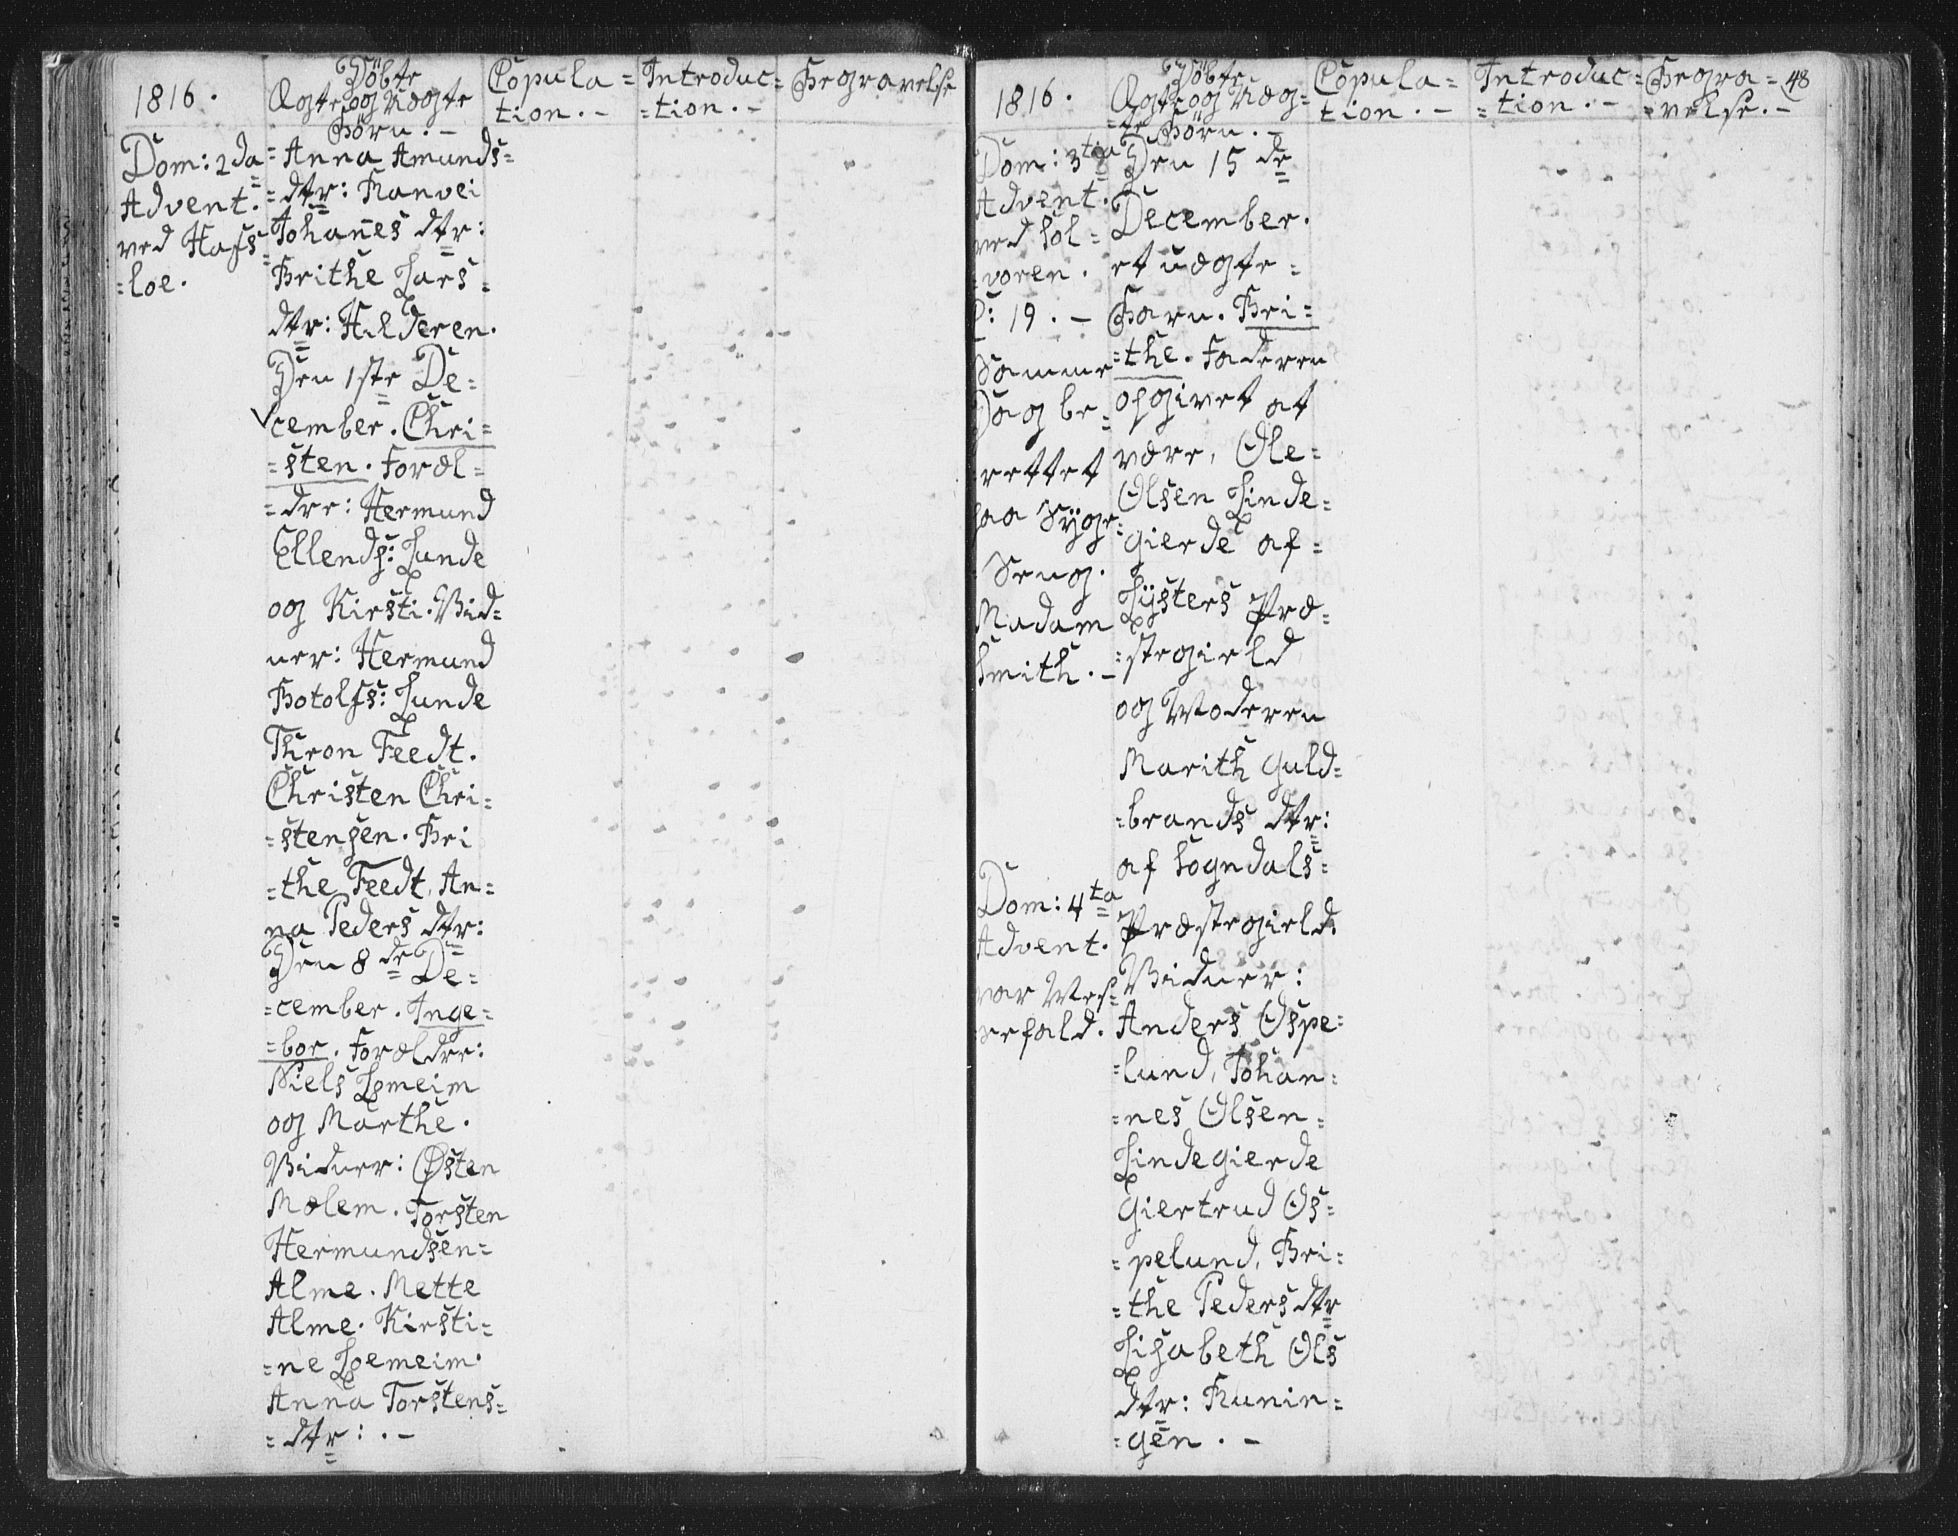 1816.
Döbte
Ægte og Uægte
Börn. -
Copula =
tion. -
Introduc=
=tion. -
Begravelse
Dom: 2da
Advent.
ved Hafs=
=loe.
=Anna Amunds=
=dtr: Ranvei
Johanes dtr:
Brithe Lars=
dtr: Hilderen.
Den 1ste De=
cember. Chri=
=sten. Foræl=
=dre: Hermund
Ellends: Lunde
og Kirsti. Vid=
ner: Hermund
Botolfs: Lunde
Thron Feedt.
Christen Chri=
=stensen. Bri
=the Feedt, An=
na Peders dtr:
Den 8de De=
=cember. Inge=
=bor. Forældre:
Niels Lomeim
og Marthe.
Vidner: Østen
Molem. Torsten
Hermundsen=
Alme. Mette
Alme. Kirsti=
=ne Lomeim.
Anna Torstens=
=dtr: . -
1816.
Döbte
Ægte og Uæg=
=te Börn. -
Copula =
tion. -
Introduc=
=tion. -
Begra =
=velse. -
48
Dom: 3tia
Advent.
ved Sol=
=voren.
D: 19. -
Samme
Dag be=
rettet
paa Syge=
Seng.
Madam
Smith. -
Dom: 4ta
Advent.
var Mes=
sefald.
Den 15de
December.
et uægte=
Barn. Bri=
=the. Faderen
opgivet at
være, Ole=
Olsen Linde=
gierde af=
Lysters Præ=
=stegield
og Moderen
Marith Guld=
=brands dtr:
af Sogndals=
Præstegield.
Vidner:
Anders Ospe=
=lund, Johan=
=nes Olsen=
Lindegierde
Giertrud Os=
=pelund, Bri=
=the Peders dtr
Lisabeth Ols
dtr: Runin=
=gen. -